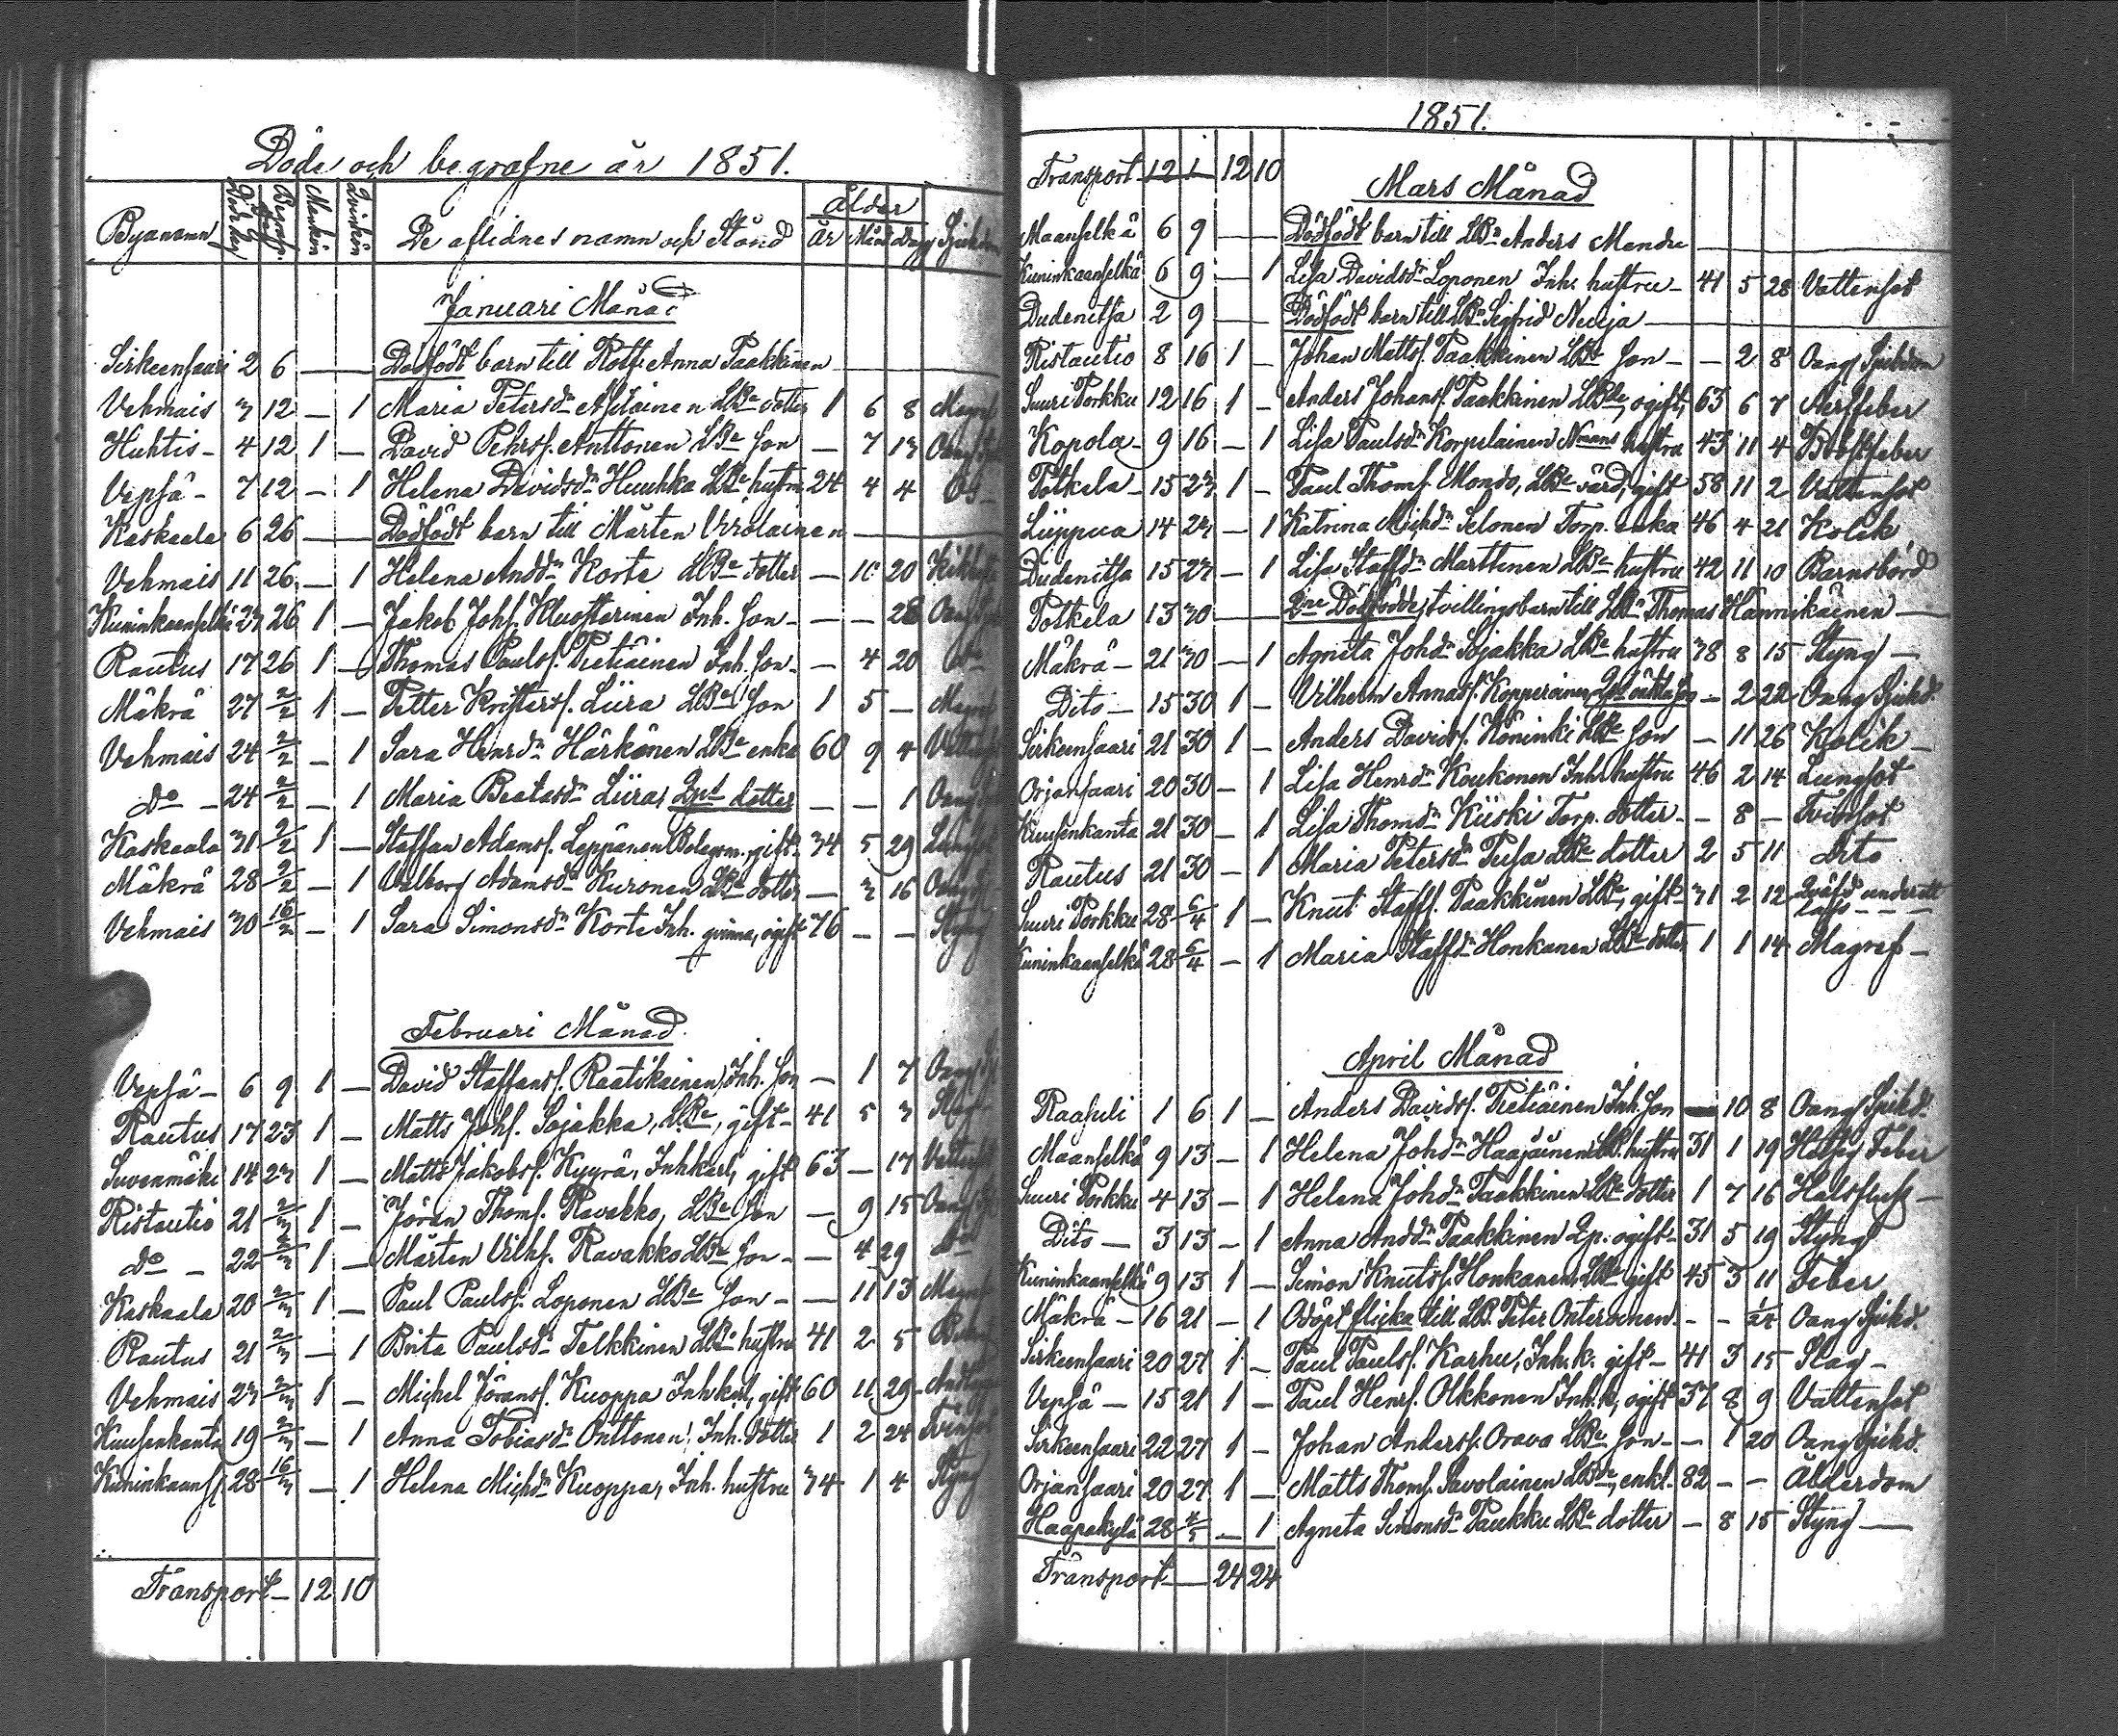 Döde och begrafne år 1851.
Byanamn Död dag Begrafn. Mankön Qvinkön De aflidnes namn och Stånd Ålder År Mån Dag Sjukdom
Januari Månad
Sirkeensaari 2 6 — — Dödfödt barn till Rotf. Anna Paakkinen
Vehmais 3 12 — 1 Maria Petersdr Asilainen LBde dotter 1 6 8
Huhtis - 4 12 1 — David Pehrss. Anttonen LBde Son — 7 13
Vepsä - 7 12 — 1 Helena Davidsdr Huuhka LBde hustru 24 4 4
Kaskaala 6 26 — — Dödfödt barn till Mårten Virolainen
Vehmais 11 26 — 1 Helena Anddr Korte LBde dotter — 10 20 Kikhosta
Kuninkaanselkä 23 26 1 — Jakob Johs. Kluosterinen Inh. Son — — 28
Rautus 17 26 1 — Thomas Paulss. Pietiäinen Inh. Son — 4 20 Do
Mäkrä 27 2/2 1 — Petter Kristerss. Liira LBde Son 1 5 —
Vehmais 24 2/2 — 1 Sara Henrdr Härkönen LBde enka 60 9 4
do — 24 2/2 — 1 Maria Beatasdr Liira, Qps dotter — — 1
Kaskaala 31 2/2 1 — Staffan Adamss. Leppänen Bolagsm. gift 34 5 29
Mäkrä 28 2/2 — 1 Valborg Adamsdr Kuronen LBde dotter — 3 16
Vehmais 30 16/2 — 1 Sara Simonsdr Korte Inh. qvinna, ogift 76 — — Styng
Februari Månad
Vepsä — 6 9 1 — David Staffanss. Raatikainen, Inh. Son — 1 7
Rautus 17 23 1 — Matts Johs. Sojakka, LBde, gift - 41 5 3
Suvenmäki 14 23 1 — Matts Jakobss. Kyyrä, Inhkarl, gift 63 — 17
Ristautio 21 2/3 1 — Jöran Thoms. Ravakko, LBde Son — 9 15
do — 22 2/3 1 — Mårten Vilhs. Ravakko LBde Son — 4 29 Do
Kaskaala 20 2/3 1 — Paul Paulss. Loponen LBde Son — 11 13
Rautus 21 2/3 — 1 Brita Paulsdr Telkkinen LBde hustru 41 2 5
Vehmais 23 2/3 1 — Michel Jöranss. Kuoppa Inhkarl, gift 60 11 29
Kuusenkanta 19 2/3 — 1 Anna Tobiasdr Onttonen, Inh. dotter 1 2 24
Kuninkaans. 28 16/3 — 1 Helena Michdr Kuoppa, Inh. hustru 34 1 4 Styng
Transport — 12 10
1851.
Transport 12 1 12 10
Mars Månad
Maanselkä 6 9 — Dödfödt barn till LBn Anders Mendre
Kuninkaanselkä 6 9 — 1 Lisa Davidsdr Loponen Inh. hustru - 41 5 28 Vattensot
Dudenitsa 2 9 — Dödfödt barn till LBn Sigfrid Neuja
Ristautio 8 16 1 — Johan Mattss. Paakkinen LBde Son - — 2 8 Oang Sjukdom
Suuri Porkku 12 16 1 — Anders Johanss. Paakkinen LBde, ogift, 63 6 7 Nerffeber
Kopola - 9 16 — 1 Lisa Paulsdr Korpulainen Nmans hustru 43 11 4 Bröstfeber
Potkela - 15 23 1 — Paul Thoms. Mondo, LBde värd, gift 58 11 2 Vattensot
Liippua 14 23 — 1 Katrina Michdr Selonen Torp. enka 46 4 21 Kolik
Dudenitsa 15 23 — 1 Lisa Staffdr Marttinen LBde hustru 42 11 10 Barnsbörd
Potkela 13 30 — 2ne Dödfödde, tvillingsbarn till LBn Thomas Hännikäinen —
Mäkrä — 21 30 — 1 Agneta Johdr Sojakka LBde hustru 38 8 15 Styng —
Dito — 15 30 1 — Vilhelm Annass. Kopperoinen Qps oäkta Son — 2 22 Oang Sjukd.
Sirkeensaari 21 30 1 — Anders Davidss. Köninki LBde Son — 11 26 Kolik —
Orjansaari 20 30 — 1 Lisa Henrdr Koukonen Inh. hustru 46 2 14 Lungsot
Kuusenkanta 21 30 — 1 Lisa Thomdr Kiiski Torp. dotter - — 8 — Tvinsot
Rautus 21 30 — 1 Maria Petersdr Pusa LBde dotter 2 5 11 Dito
Suuri Porkku 28 6/4 1 — Knut Staffs. Paakkinen LBde, gift - 31 2 12 Qväfd under ett
Kuninkaanselkä 28 6/4 — 1 Maria Staffdr Honkanen LBde dotter 1 1 14 Magref —
April Månad
Raasuli 1 6 1 — Anders Davidss. Pietiäinen Inh. Son — 10 8 Oang Sjukd.
Maanselkä 9 13 — 1 Helena Johdr Haajainen LB. hustru 31 1 19 Hetsig Feber
Suuri Porkku 4 13 — 1 Helena Johdr Paakkinen LBde dotter 1 7 16 Halsfluss —
Dito — 3 13 — 1 Anna Anddr Paakkinen Qp. ogift - 31 5 19 Styng
Kuninkaanselkä 9 13 1 — Simon Knutss. Honkanen LBde gift 45 3 11 Feber
Mäkrä — 16 21 — 1 Odöpt flicka till LB. Peter Onteroinen - — 1/24 Oang Sjukd.
Sirkeensaari 20 27 1 — Paul Paulss. Karhu, Inh. k. gift — 41 3 15 Slag —
Vepsä — 15 21 1 — Paul Henrs. Olkkonen Inh. k, ogift 37 8 9 Vattensot
Sirkeensaari 22 27 1 — Johan Anderss. Orava LBde Son - — 1 20 Oang Sjukd.
Orjansaari 20 27 1 — Matts Thoms. Savolainen LBde, enkl. 82 - - Ålderdom
Haapakylä 28 4/5 — 1 Agneta Simonsdr Paukku LBde dotter — 8 15 Styng —
Transport — 24 24